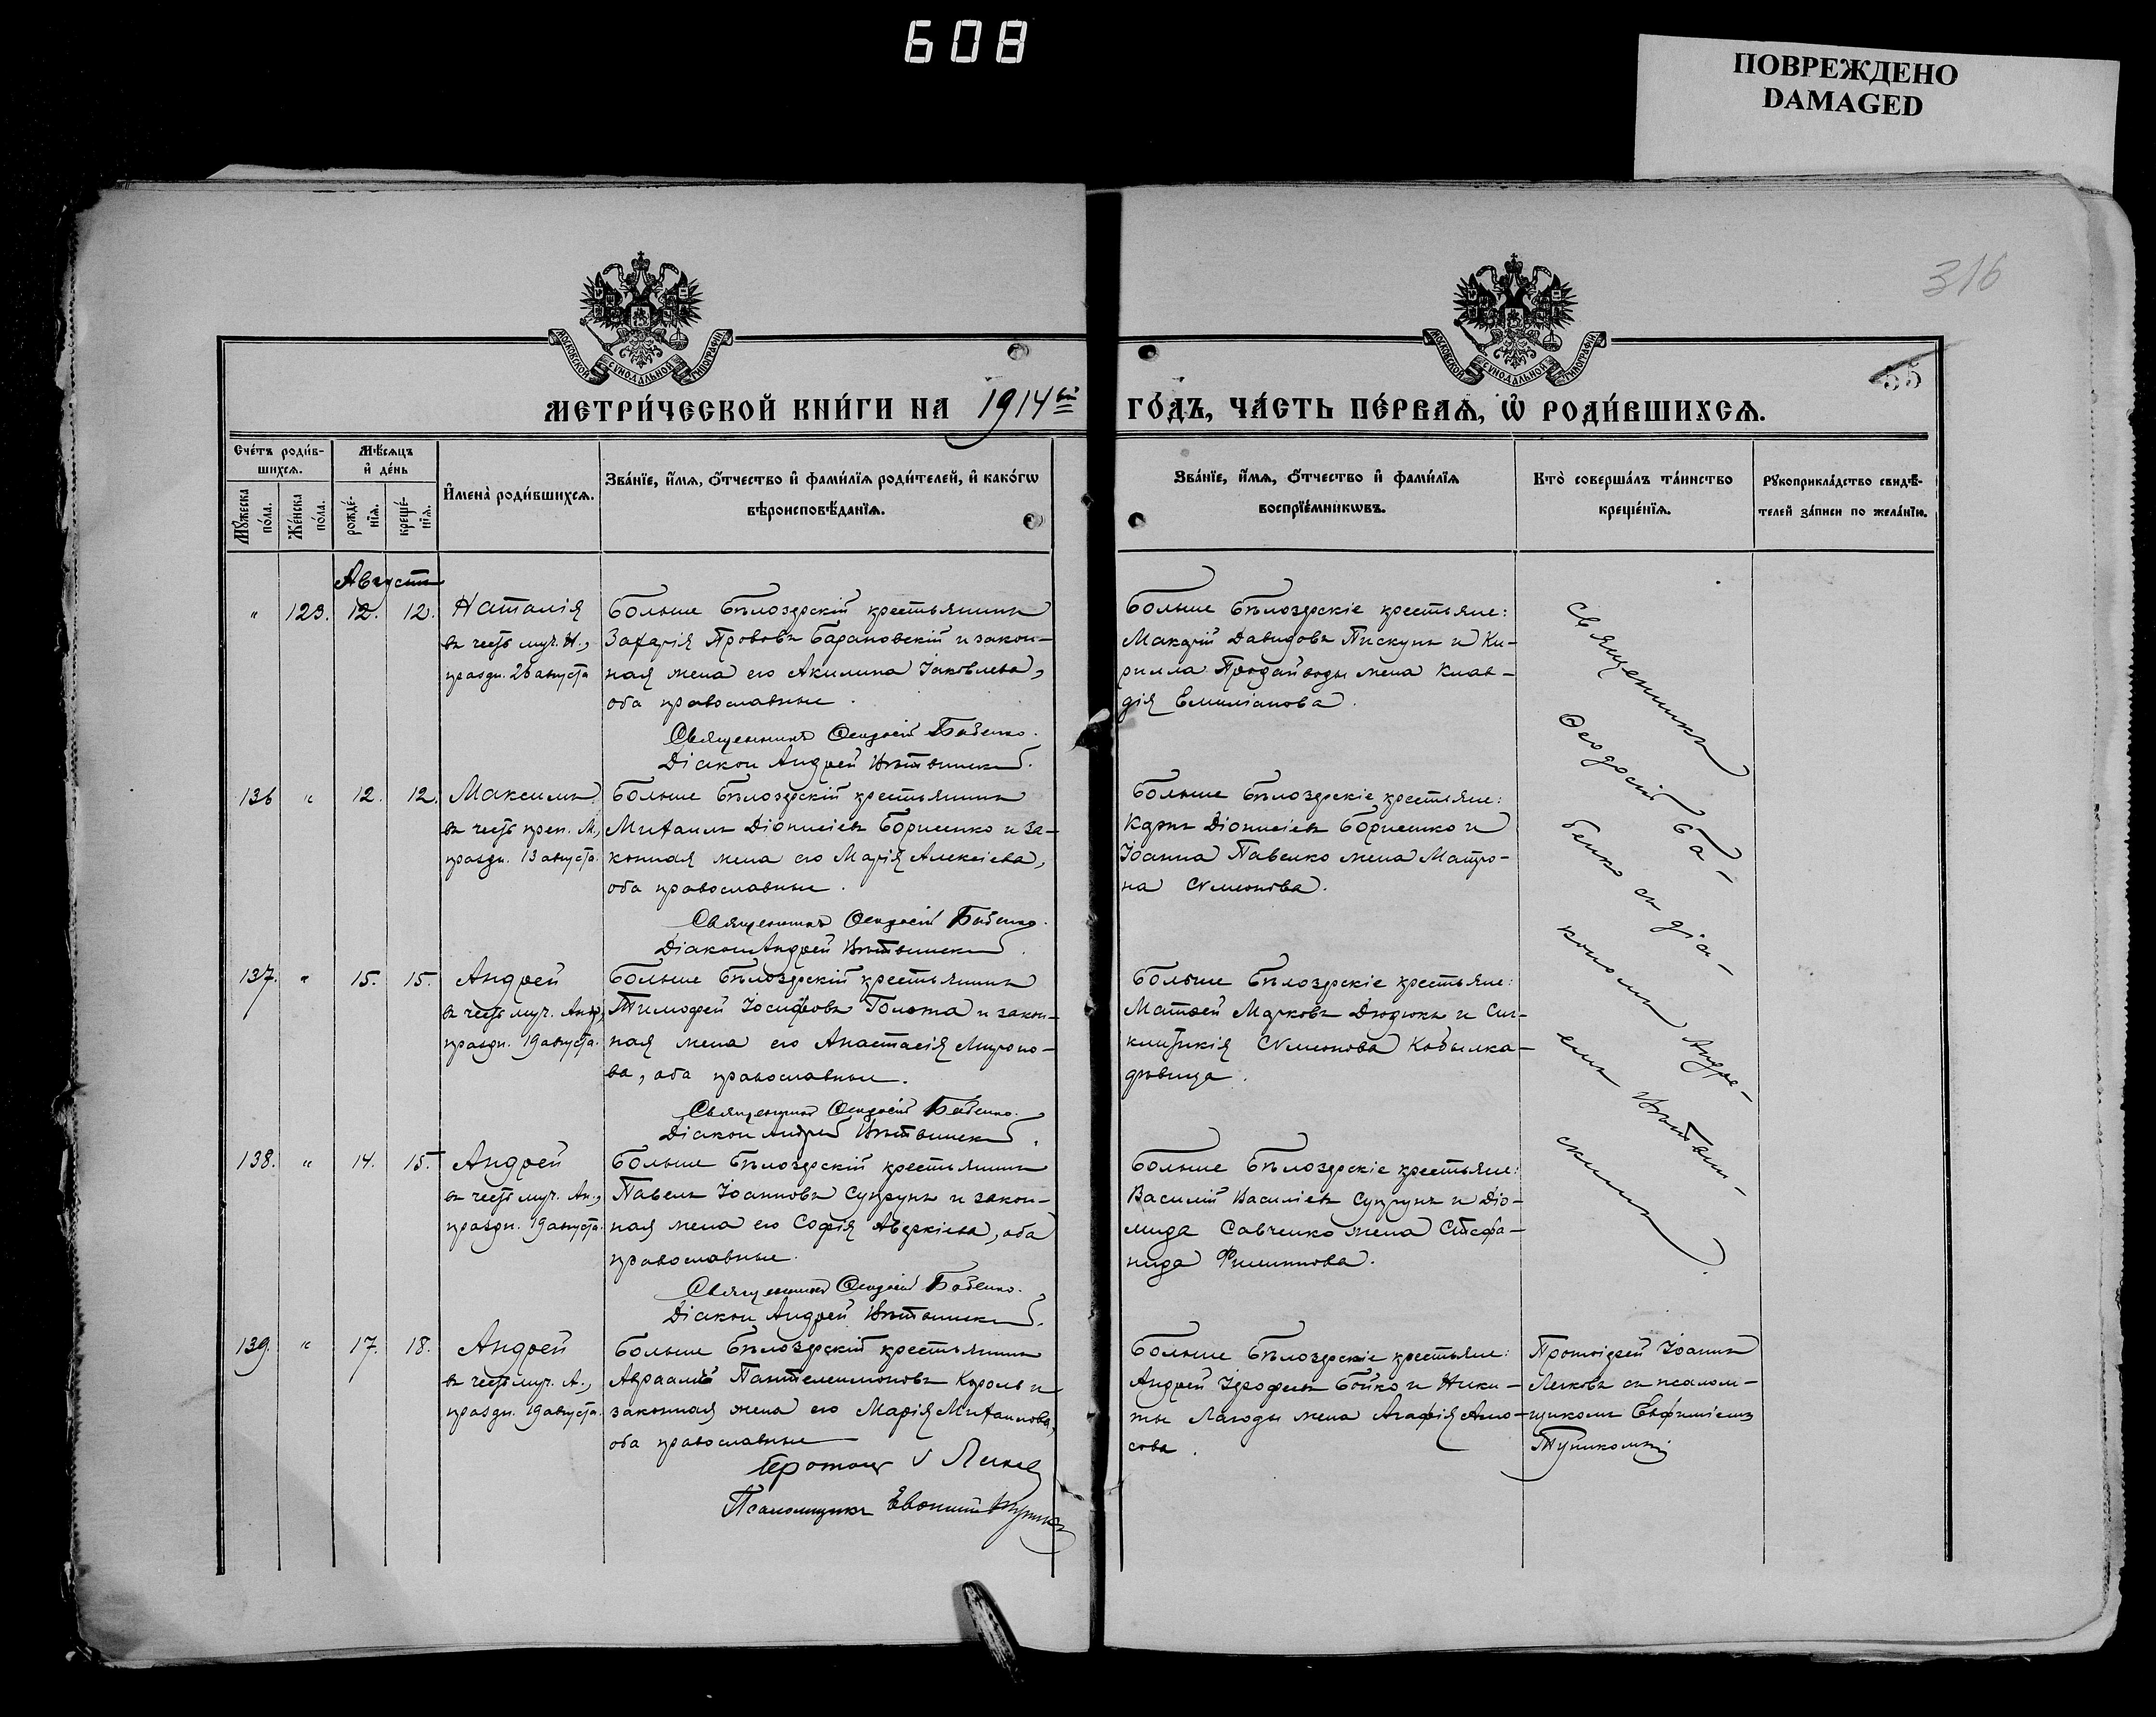 608
ПОВРЕЖДЕНО
DAMAGED
316
55
МОСКОВСКОЙ СѴНОДАЛЬНОЙ ТИПОГРАФІИ
МОСКОВСКОЙ СѴНОДАЛЬНОЙ ТИПОГРАФІИ
МЕТРИ́ЧЕСКОЙ КНИ́ГИ НА 1914 ый
ГО́ДЪ, ЧА́СТЬ ПЕ́РВАѦ, Ѡ҆ РОДИ́ВШИХСѦ.
Сче́тъ роди́в-
шихсѧ.
Мꙋ́жеска
по́ла.
Же́нска
по́ла.
Мѣ́сѧцъ
и҆ де́нь
рожде́-
нїѧ.
креще́-
нїѧ.
И҆мена̀ роди́вшихсѧ.
Зва́нїе, и҆́мѧ, ѻ҆́тчество и҆ фами́лїѧ роди́телей, и҆ како́гѡ
вѣроисповѣ́данїѧ.
Зва́нїе, и҆́мѧ, ѻ҆́тчество и҆ фами́лїѧ
воспрїе́мникѡвъ.
Кто̀ соверша́лъ та́инство
креще́нїѧ.
Рꙋкоприкла́дство свидѣ́-
телей за́писи по жела́нїю.
Августъ
" 123. 12. 12. Наталія
въ честь муч. Н.,
праздн. 26 августа
Больше Бѣлозерскій крестьянинъ
Захарія Прововъ Барановскій и закон-
ная жена его Акилина Іаковлева,
оба православные.
Священникъ Ѳеодосій Бабенко.
Діаконъ Андрей Вѣтвинскій.
Больше Бѣлозерскіе крестьяне:
Макарій Давидовъ Пискунъ и Ки-
рилла Продайводы жена Клав-
дія Емиліанова.
Священникъ
Ѳеодосій Ба-
бенко съ діа-
кономъ Андре-
емъ Вѣтвин-
скимъ.
136 " 12. 12. Максимъ
въ честь преп. М.,
праздн. 13 августа.
Больше Бѣлозерскій крестьянинъ
Михаилъ Діонисіевъ Борисенко и за-
конная жена его Марія Алексіева,
оба православные.
Священникъ Ѳеодосій Бабенко.
Діаконъ Андрей Вѣтвинскій.
Больше Бѣлозерскіе крестьяне:
Карпъ Діонисіевъ Борисенко и
Іоанна Павенко жена Матро-
на Сѵмеонова.
137. " 15. 15. Андрей
въ честь муч. Андр.,
праздн. 19 августа.
Больше Бѣлозерскій крестьянинъ
Тимофей Іосифовъ Голота и закон-
ная жена его Анастасія Мироно-
ва, оба православные.
Священникъ Ѳеодосій Бабенко.
Діаконъ Андрей Вѣтвинскій.
Больше Бѣлозерскіе крестьяне:
Матѳей Марковъ Дюдюкъ и Син-
клитикія Сѵмеонова Кобылка-
дѣвица.
138. " 14. 15. Андрей
въ честь муч. Ан.,
праздн. 19 августа.
Больше Бѣлозерскій крестьянинъ
Павелъ Іоанновъ Супрунъ и закон-
ная жена его Софія Аверкіева, оба
православные.
Священникъ Ѳеодосій Бабенко.
Діаконъ Андрей Вѣтвинскій.
Больше Бѣлозерскіе крестьяне:
Василій Василіевъ Супрунъ и Діо-
мида Савченко жена Стефа-
нида Филиппова.
139. " 17. 18. Андрей
въ честь муч. А.,
праздн. 19 августа.
Больше Бѣлозерскій крестьянинъ
Авраамъ Пантелеимоновъ Король и
законная жена его Марія Михаилова,
оба православные
Псаломщикъ Евфимій
Больше Бѣлозерскіе крестьяне:
Андрей Іерофеевъ Бойко и Ники-
ты Лагоды жена Агафія Амо-
сова.
Протоіерей Іоаннъ
Легковъ съ псалом-
щикомъ Евфиміемъ